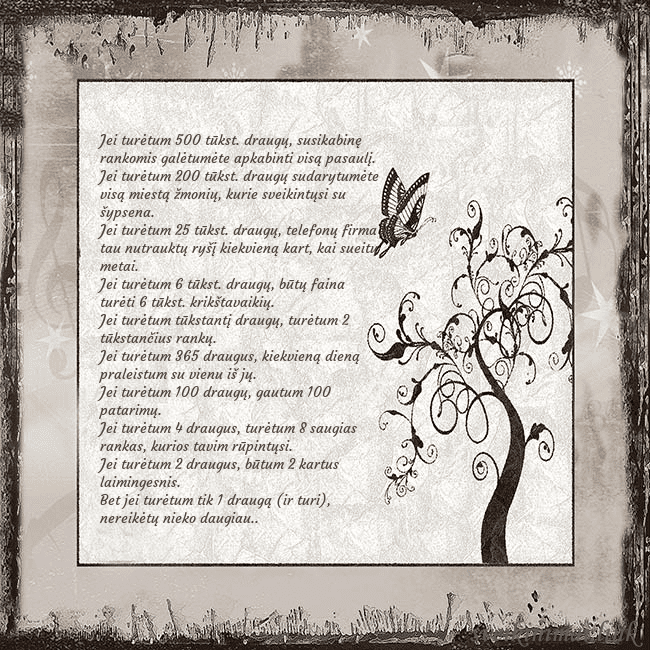 Jei turėtum 500 tūkst. draugų, susikabinę
rankomis galėtumėte apkabinti visą pasaulį.
Jei turėtum 200 tūkst. draugų sudarytumėte
visą miestą žmonių, kurie sveikintųsi su
šypsena.
Jei turėtum 25 tūkst. draugų, telefonų firma
tau nutrauktų ryšį kiekvieną kart, kai sueitų
metai.
Jei turėtum 6 tūkst. draugų, būtų faina
turėti 6 tūkst. krikštavaikių.
Jei turėtum tūkstantį draugų, turėtum 2
tūkstančius rankų.
Jei turėtum 365 draugus, kiekvieną dieną
praleistum su vienu iš jų.
Jei turėtum 100 draugų, gautum 100
patarimų.
Jei turėtum 4 draugus, turėtum 8 saugias
rankas, kurios tavim rūpintųsi.
Jei turėtum 2 draugus, būtum 2 kartus
laimingesnis.
Bet jei turėtum tik 1 draugą (ir turi),
nereikėtų nieko daugiau..